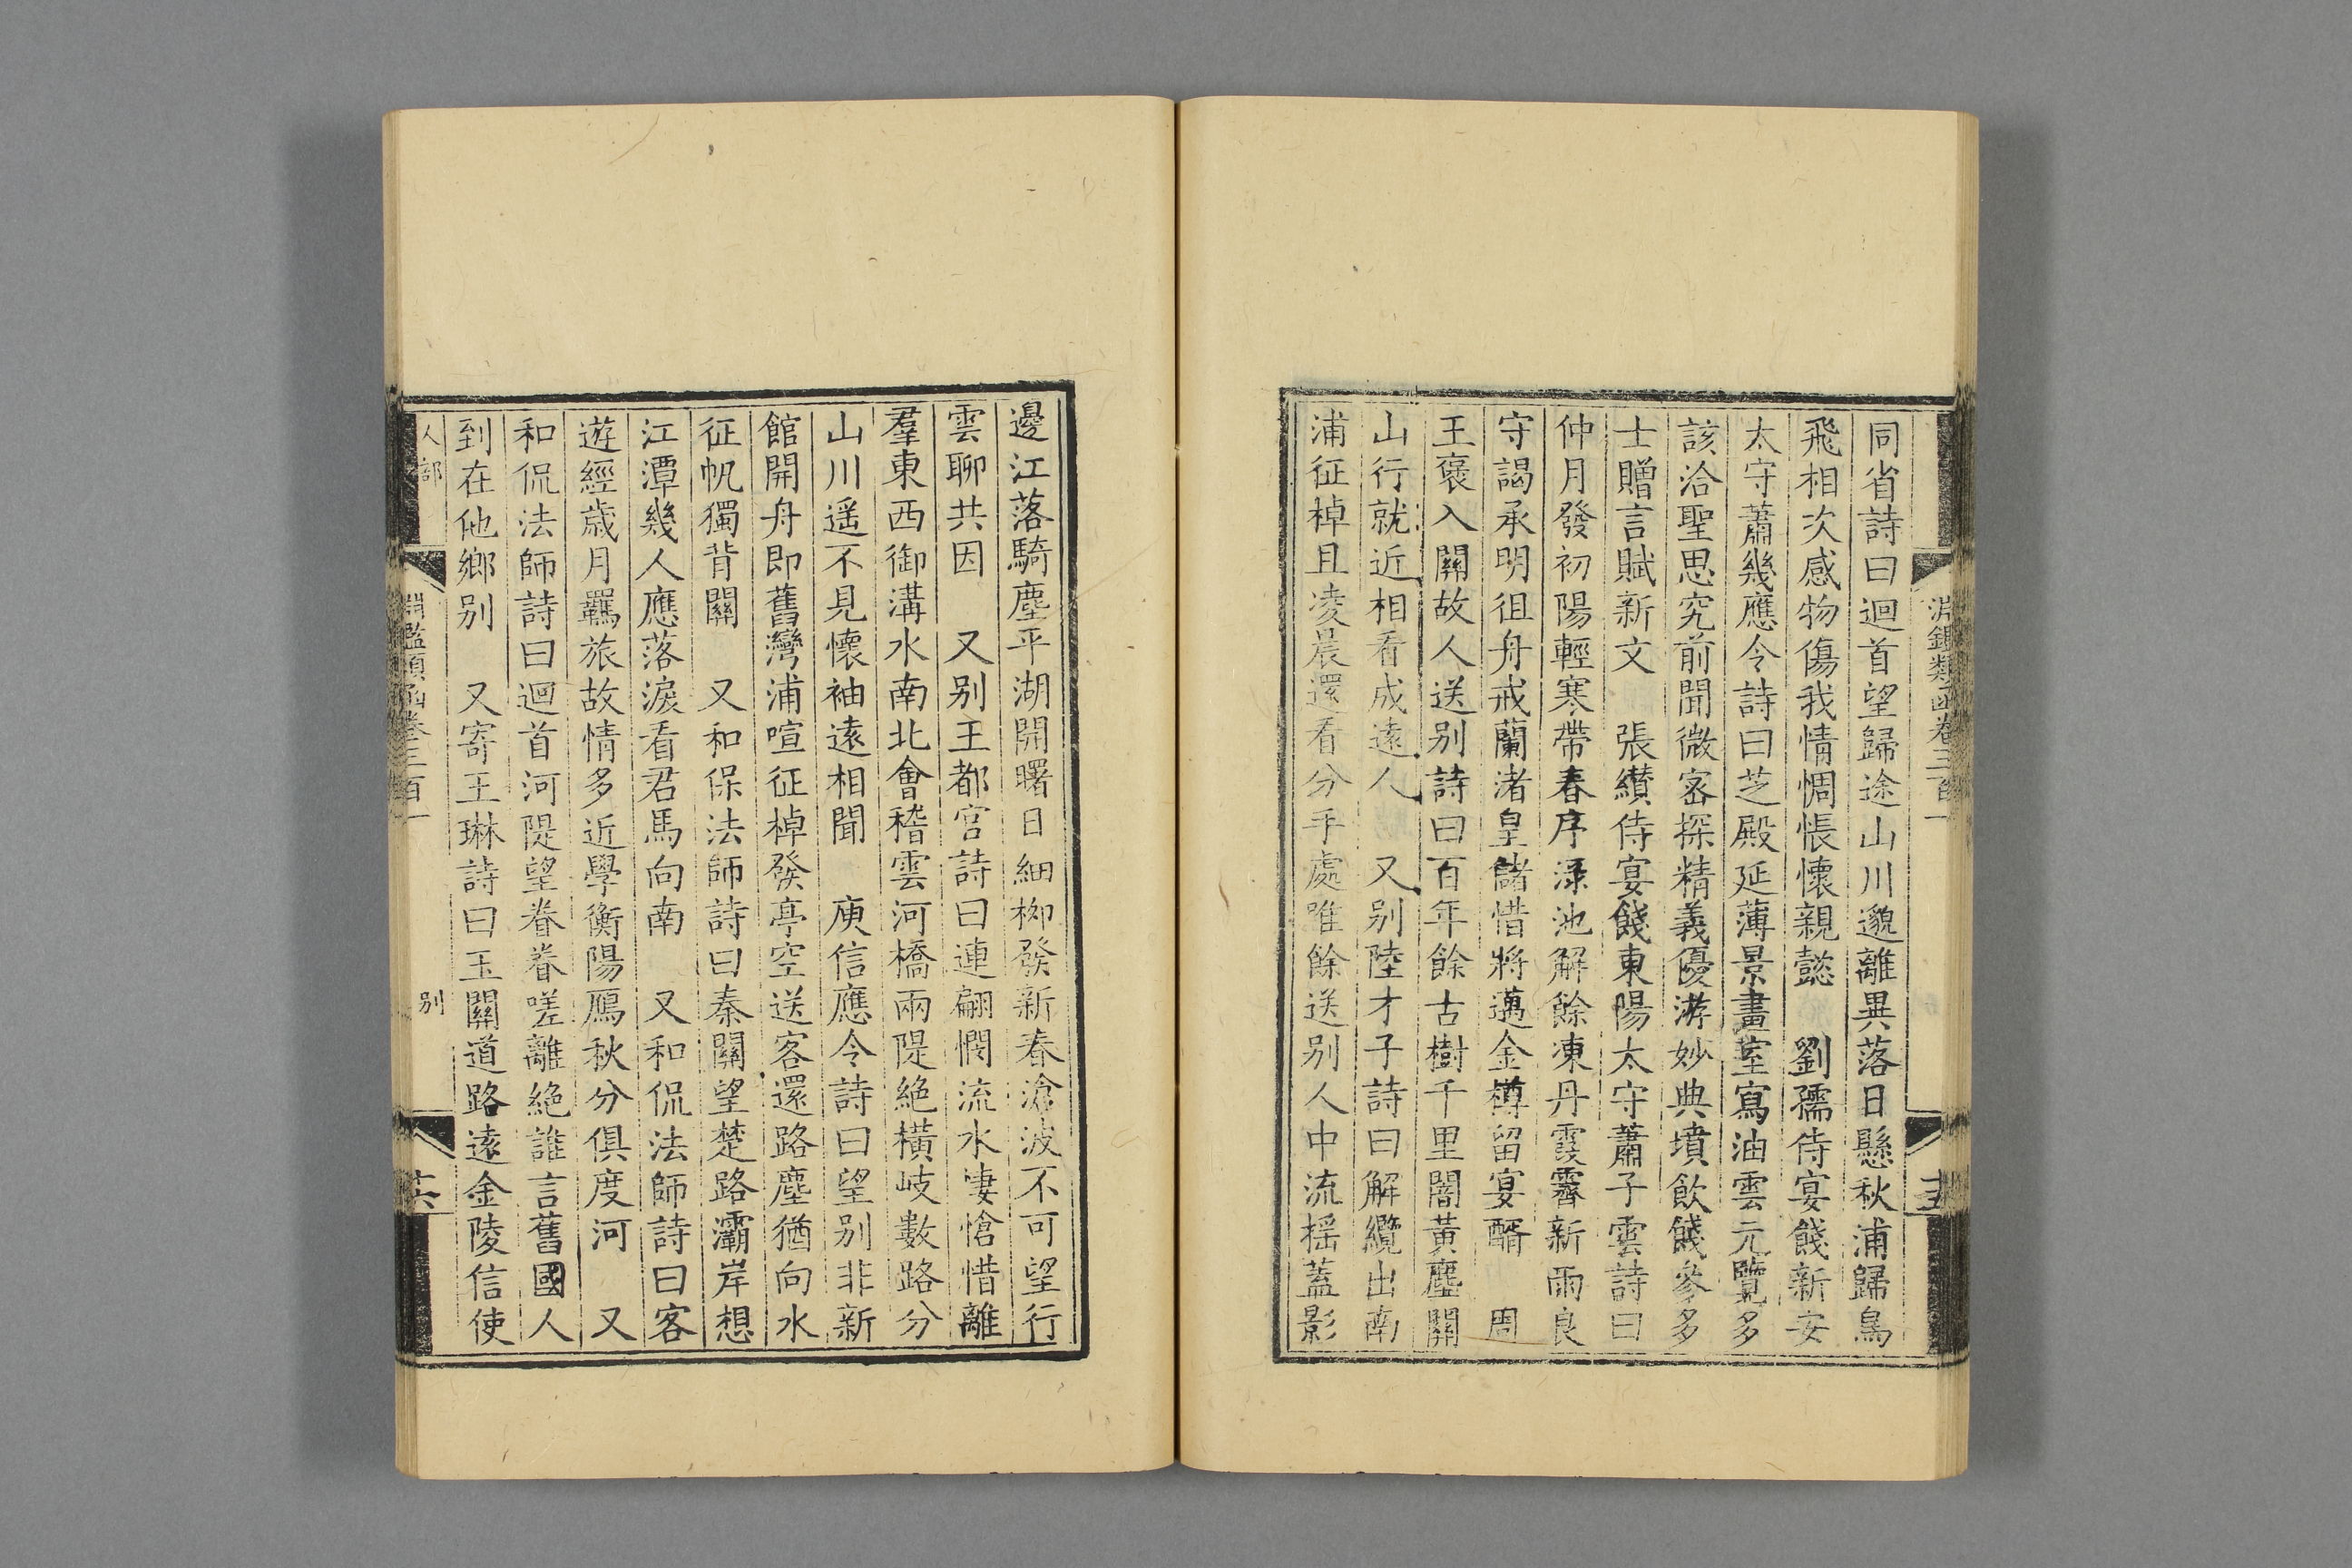 淵鑑類函卷三百一
十五
同省詩曰迴首望歸途山川邈離異落日懸秋浦歸鳥
飛相次感物傷我情惆悵懷親懿　劉孺侍宴餞新安
太守蕭幾應令詩曰芝殿延薄景畫室寫油雲元覽多
該洽聖思究前聞微密探精義優游妙典墳飲餞參多
士贈言賦新文　張纘侍宴餞東陽太守蕭子雲詩曰
仲月發初陽輕寒帶春序淥池解餘凍丹霞霽新雨良
守謁承明徂舟戒蘭渚皇儲惜將邁金樽留宴醑　周
王褒入關故人送别詩曰百年餘古樹千里闇黃塵關
山行就近相看成遠人　又别陸才子詩曰解纜出南
浦征棹且凌晨還看分手處唯餘送别人中流揺蓋影
邊江落騎塵平湖開曙日細栁發新春滄波不可望行
雲聊共因　又别王都官詩曰連翩憫流水悽愴惜離
羣東西御溝水南北會稽雲河橋兩隄絶橫岐數路分
山川遥不見懷袖遠相聞　庾信應令詩曰望别非新
館開舟即舊灣浦喧征棹發亭空送客還路塵猶向水
征帆獨背關　又和保法師詩曰秦關望楚路灞岸想
江潭幾人應落淚看君馬向南　又和侃法師詩曰客
遊經歲月羈旅故情多近學衡陽鴈秋分俱度河　又
和侃法師詩曰迴首河隄望眷眷嗟離絶誰言舊國人
到在他鄉别　又寄王琳詩曰玉關道路遠金陵信使
人部
淵鑑類函卷三百一
别
十六